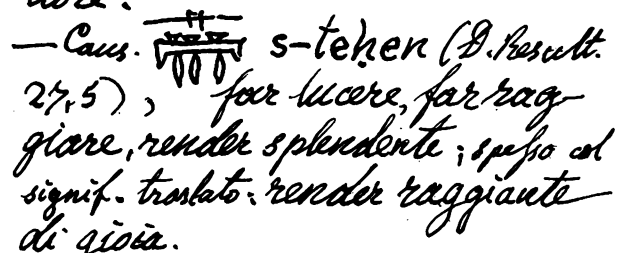 — Caus. s-teḥen (D. Result.
27,5), far lucere, far rag-
giare, render splendente; spesso col
signif. traslato: render raggiante
di gioia.